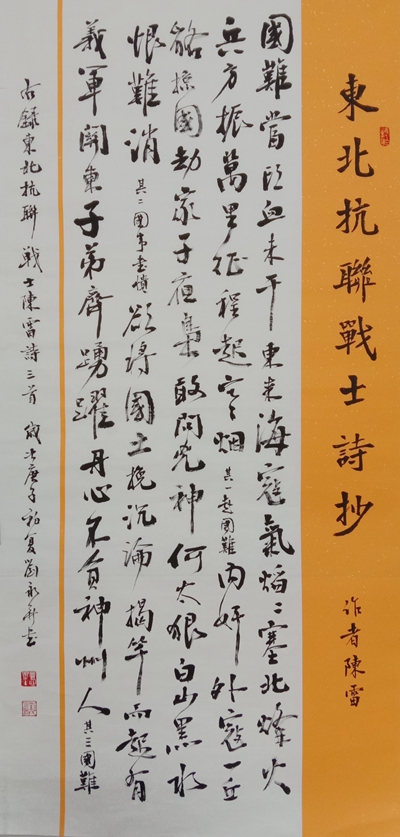 東北抗聯戰士詩抄
作者陳雷
國難當頭血未干東來海寇氣焰焰塞北烽火
兵方振萬里征程起寒烟其一赴國難内奸外寇一丘
貉掠國劫家于夜梟敢問兇神何太狠白山黑水
恨難消其二國事悲憤欲將國土挽沉淪揭竿而起有
義軍關東子弟齊踴躍丹心不負神州人其三國難
右錄東北抗聯戰士陳雷詩三首歲次庚子初夏劉永